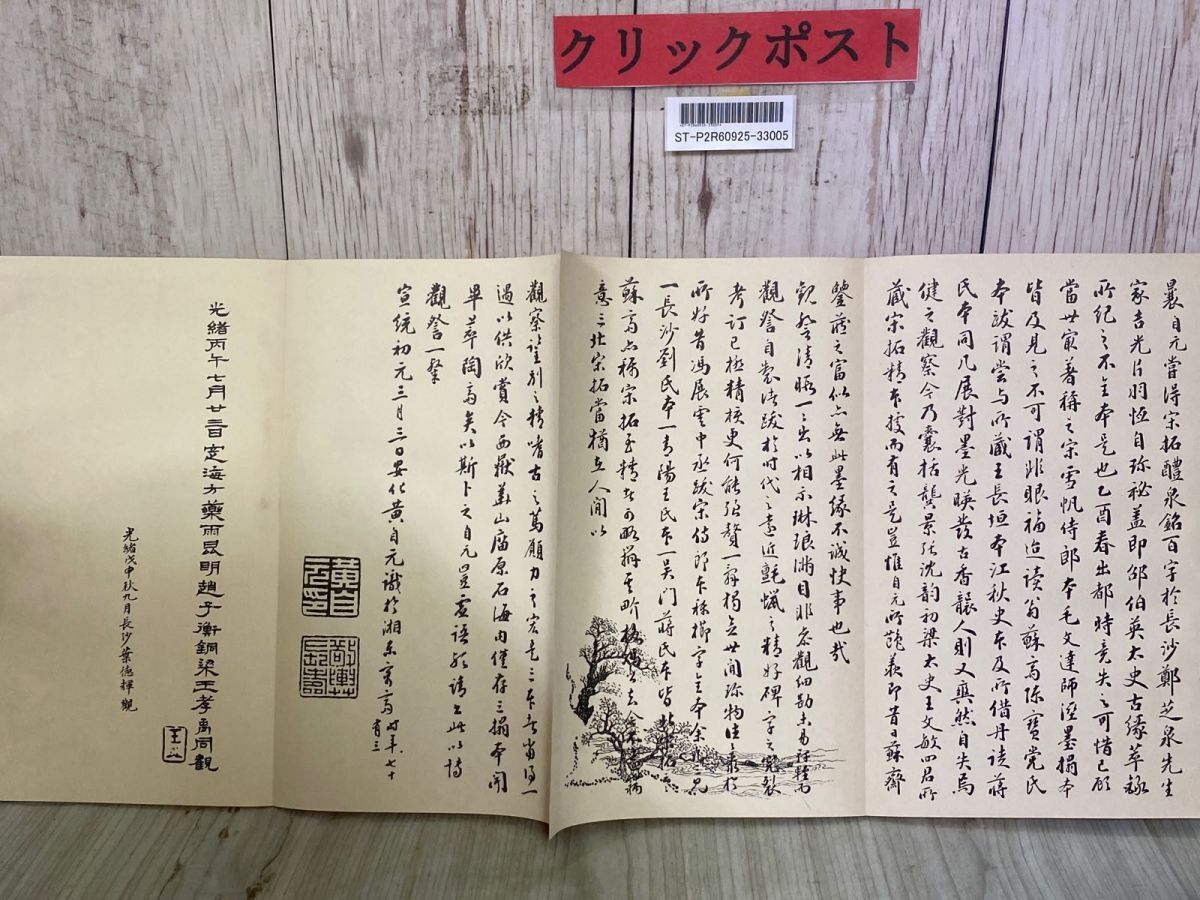 クリックポスト
ST-P2R60925-33005
曩自元嘗得宋拓醴泉銘百字於長沙鄭芝泉先生
家吉光片羽恆自珍秘蓋即邵伯英太史古緣萃錄
所紀之不全本是也乙酉春出都時竟失之可惜已顧
當世最著稱之宋雪帆侍郎本毛文達師溼墨搨本
皆及見之不可謂非眼福也讀翁蘇高陳寶党氏
本跋謂嘗與所藏王長垣本江秋史本及所借丹徒蔣
民本同几展對墨光暎發古香襲人則又爽然自失焉
健之觀察今乃囊括龔景張沈韵初梁太史王文敏四君所
藏宋拓精本擅而有之是豈惟自元所豔羨即昔日蘇齋
鑒藏之富似亦無此墨緣不誠快事也哉
觀詧清暇一一出以相示琳琅滿目非忽觀細勘未易
觀詧自製諸跋於時代之遠近氈蠟之精好碑字之完裂
考訂已極精核更何能強贅一辭獨念世間珍物往往聚於
所好昔馮展雲中丞跋宋侍郎本稱櫛字全本余
一長沙劉氏本一青陽王氏本一吳門蔣氏本皆
蘇高亦稱宋拓至精
意三北宋拓當猶在人間以
觀察鑒別之精嗜古之篤願力之宏是三本者當得一
遇以供欣賞今西嶽華山廟原石海內僅存三搨本聞
畢萃陶高矣以斯卜之自元豈虛語邪請書此以博
觀詧一粲
宣統初元三月三日安化黃自元識於湘東寄高時年七十
有三
黃自元印
光緒丙午七月廿三日定海方藥雨昆明趙子衡銅梁王孝禹同觀
光緒戊申秋九月長沙葉德輝觀